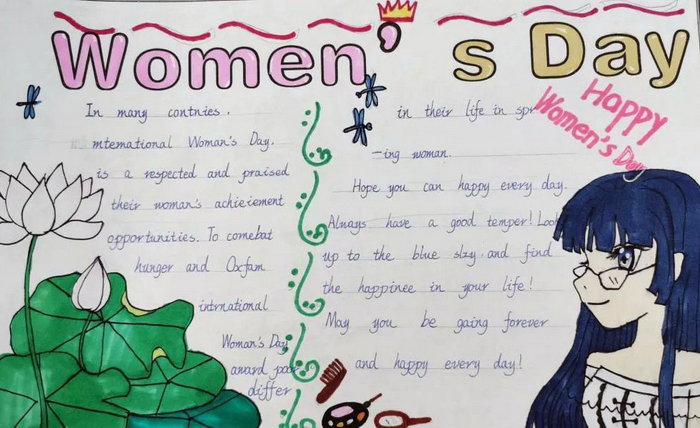 Women's Day
Happy
Women's Day
In many contnies.
mternational Woman's Day.
is a respected and praised
their woman's achieiement
opportunities. To comebat
hunger and Oxfam
intrnational
Woman's Day
award poor
differ
in their life in spr
-ing woman.
Hope you can happy every day.
Always have a good temper! Look
up to the blue slzy and find
the happinee in your life!
May you be gaing forever
and happy every day!